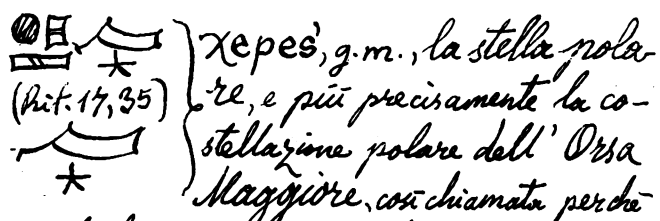 χepeś, g.m., la stella pola-
(Rit. 17,35) re, e più precisamente la co-
stellazione polare dell' Orsa
Maggiore, così chiamata perchè